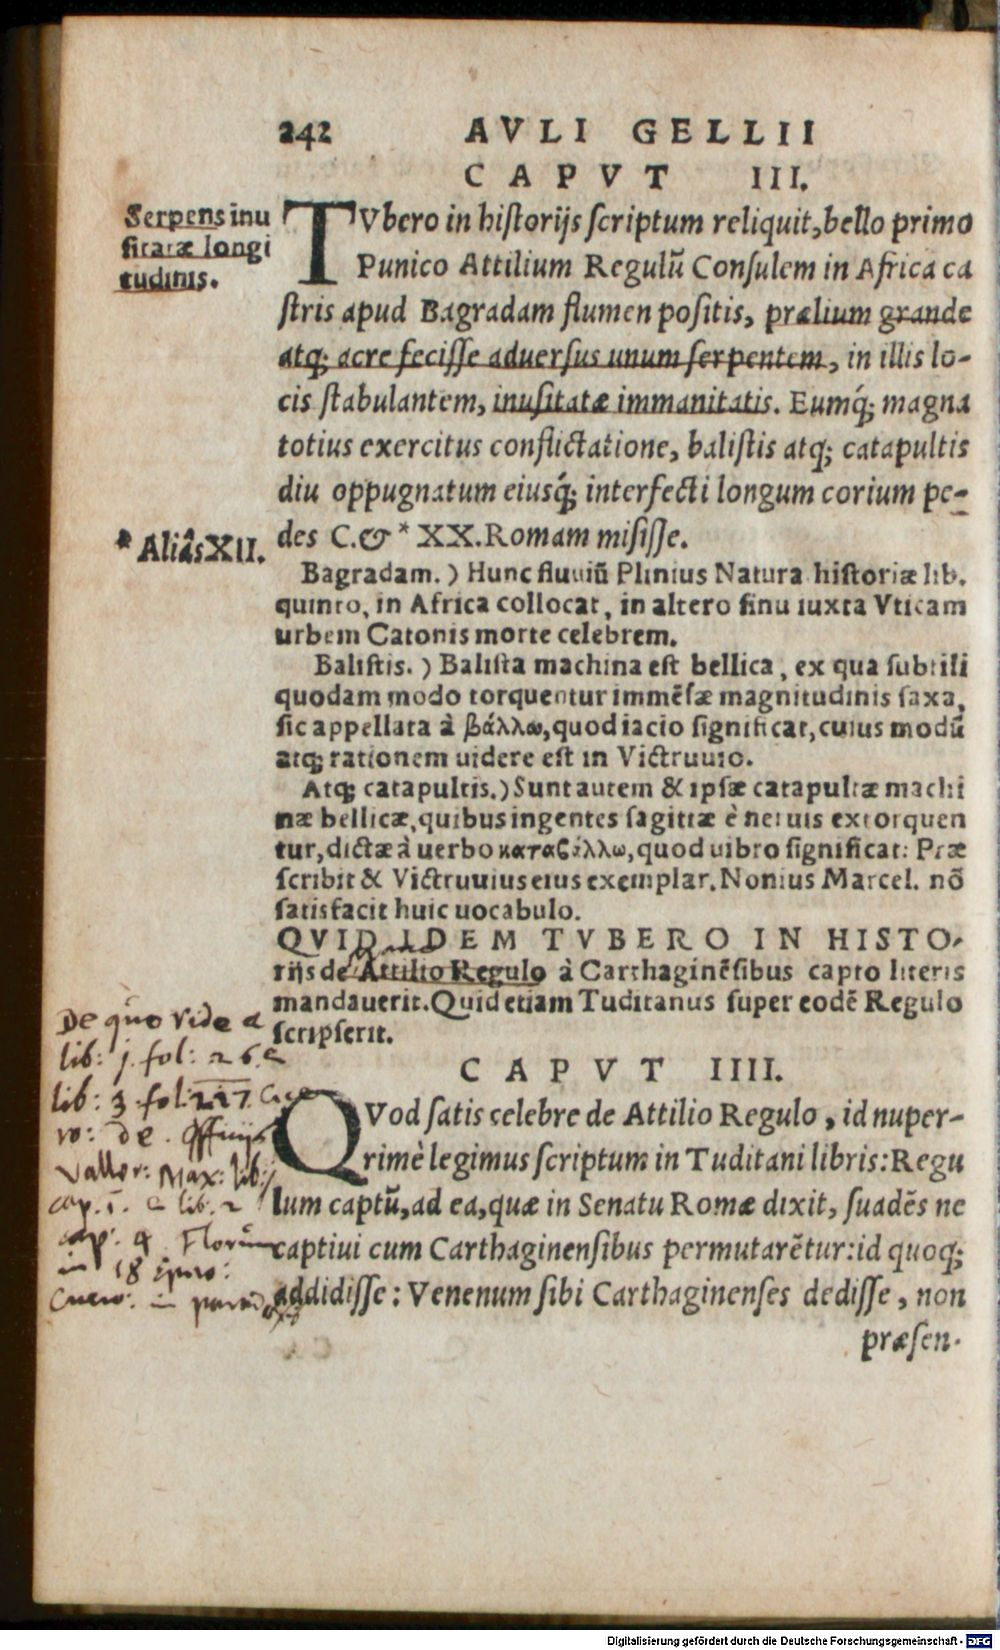 242 AVLI GELLII
CAPVT III.
Serpens inu
sitatæ longi
tudinis.
TVbero in historijs scriptum reliquit, bello primo
Punico Attilium Regulũ Consulem in Africa ca
stris apud Bagradam flumen positis, prælium grande
atq; acre fecisse aduersus unum serpentem, in illis lo-
cis stabulantem, inusitatæ immanitatis. Eumq́; magna
totius exercitus conflictatione, balistis atq; catapultis
diu oppugnatum eiusq́; interfecti longum corium pe-
* Aliâs XII.
des C. & * XX. Romam misisse.
Bagradam.) Hunc fluuiũ Plinius Natura. historiæ lib.
quinto, in Africa collocat, in altero sinu iuxta Vticam
urbem Catonis morte celebrem.
Balistis.) Balista machina est bellica, ex qua subtili
quodam modo torquentur immẽsæ magnitudinis saxa,
sic appellata à βάλλω, quod iacio significat, cuius modũ
atq; rationem uidere est in Victruuio.
Atq; catapultis.) Sunt autem & ipsæ catapultæ machi
næ bellicæ, quibus ingentes sagittæ è neruis extorquen
tur, dictæ à uerbo καταβάλλω, quod uibro significat: Præ
scribit & Victruuius eius exemplar. Nonius Marcel. nõ
satisfacit huic uocabulo.
QVID IDEM TVBERO IN HISTO-
rijs de Attilio Regulo à Carthaginẽsibus capto literis
mandauerit. Quid etiam Tuditanus super eodẽ Regulo
scripserit.
De quo vide
lib: j. fol: 26.
lib: 3. fol: 227. Cice
ro: de. Offitijs
Valler: Max: lib: j
cap. 1. e lib. 2
cap: 4 Florum
in 18 Epito:
Cicero: in parad
CAPVT IIII.
QVod satis celebre de Attilio Regulo, id nuper-
rimè legimus scriptum in Tuditani libris: Regu
lum captũ, ad ea, quæ in Senatu Romæ dixit, suadẽs ne
captiui cum Carthaginensibus permutarẽtur: id quoq;
addidisse: Venenum sibi Carthaginenses dedisse, non
præsen-
Digitalisierung gefördert durch die Deutsche Forschungsgemeinschaft - DFG